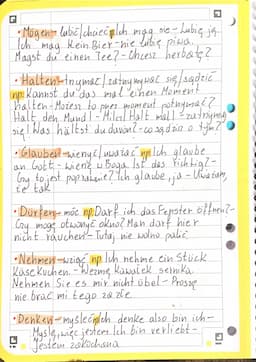 • Mögen - lubić/chcieć np Ich mag sie - Lubię ją
Ich mag kein Bier - nie lubię piwa.
Magst du einen Tee? - Chcesz herbatę?
• Halten - trzymać/zatrzymywać się/sądzić
np. kannst du das mal einen Moment
halten - Możesz to przez moment potrzymać?
Halt den Mund! - Milcz! Halt mal! - zatrzymaj
się! Was hältst du davon? - co sądzisz o tym?
• Glauben - wierzyć/uważać np Ich glaube
an Gott - wierzę w Boga. Ist das richtig? -
Czy to jest poprawne? Ich glaube, ja - Uważam,
że tak
• Dürfen - móc np. Darf ich das Fenster öffnen? -
Czy mogę otworzyć okno? Man darf hier
nicht rauchen - Tutaj nie wolno palić
• Nehmen - wziąć np Ich nehme ein Stück
Käsekuchen - Wezmę kawałek sernika.
Nehmen Sie es mir nicht übel - Proszę
nie brać mi tego za złe
• Denken - myśleć np Ich denke also bin ich -
Myślę, więc jestem. Ich bin verliebt -
jestem zakochana